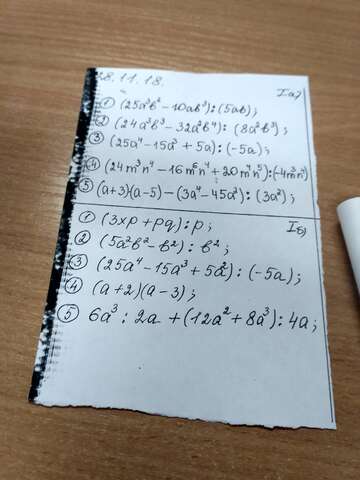 28.11.18.
I а)
① (25a³b² - 10ab³) : (5ab);
② (24a³b³ - 32a²b⁴) : (8a²b³);
③ (25a⁴ - 15a³ + 5a) : (-5a);
④ (24m³n⁴ - 16m⁶n⁴ + 20m⁴n⁵) : (-4m³n⁴)
⑤ (a+3)(a-5) - (3a⁴ - 45a³) : (3a²);
I б)
① (3xp + pq) : p;
② (5a²b² - b²) : b²;
③ (25a⁴ - 15a³ + 5a²) : (-5a);
④ (a+2)(a-3);
⑤ 6a³ : 2a + (12a² + 8a³) : 4a;